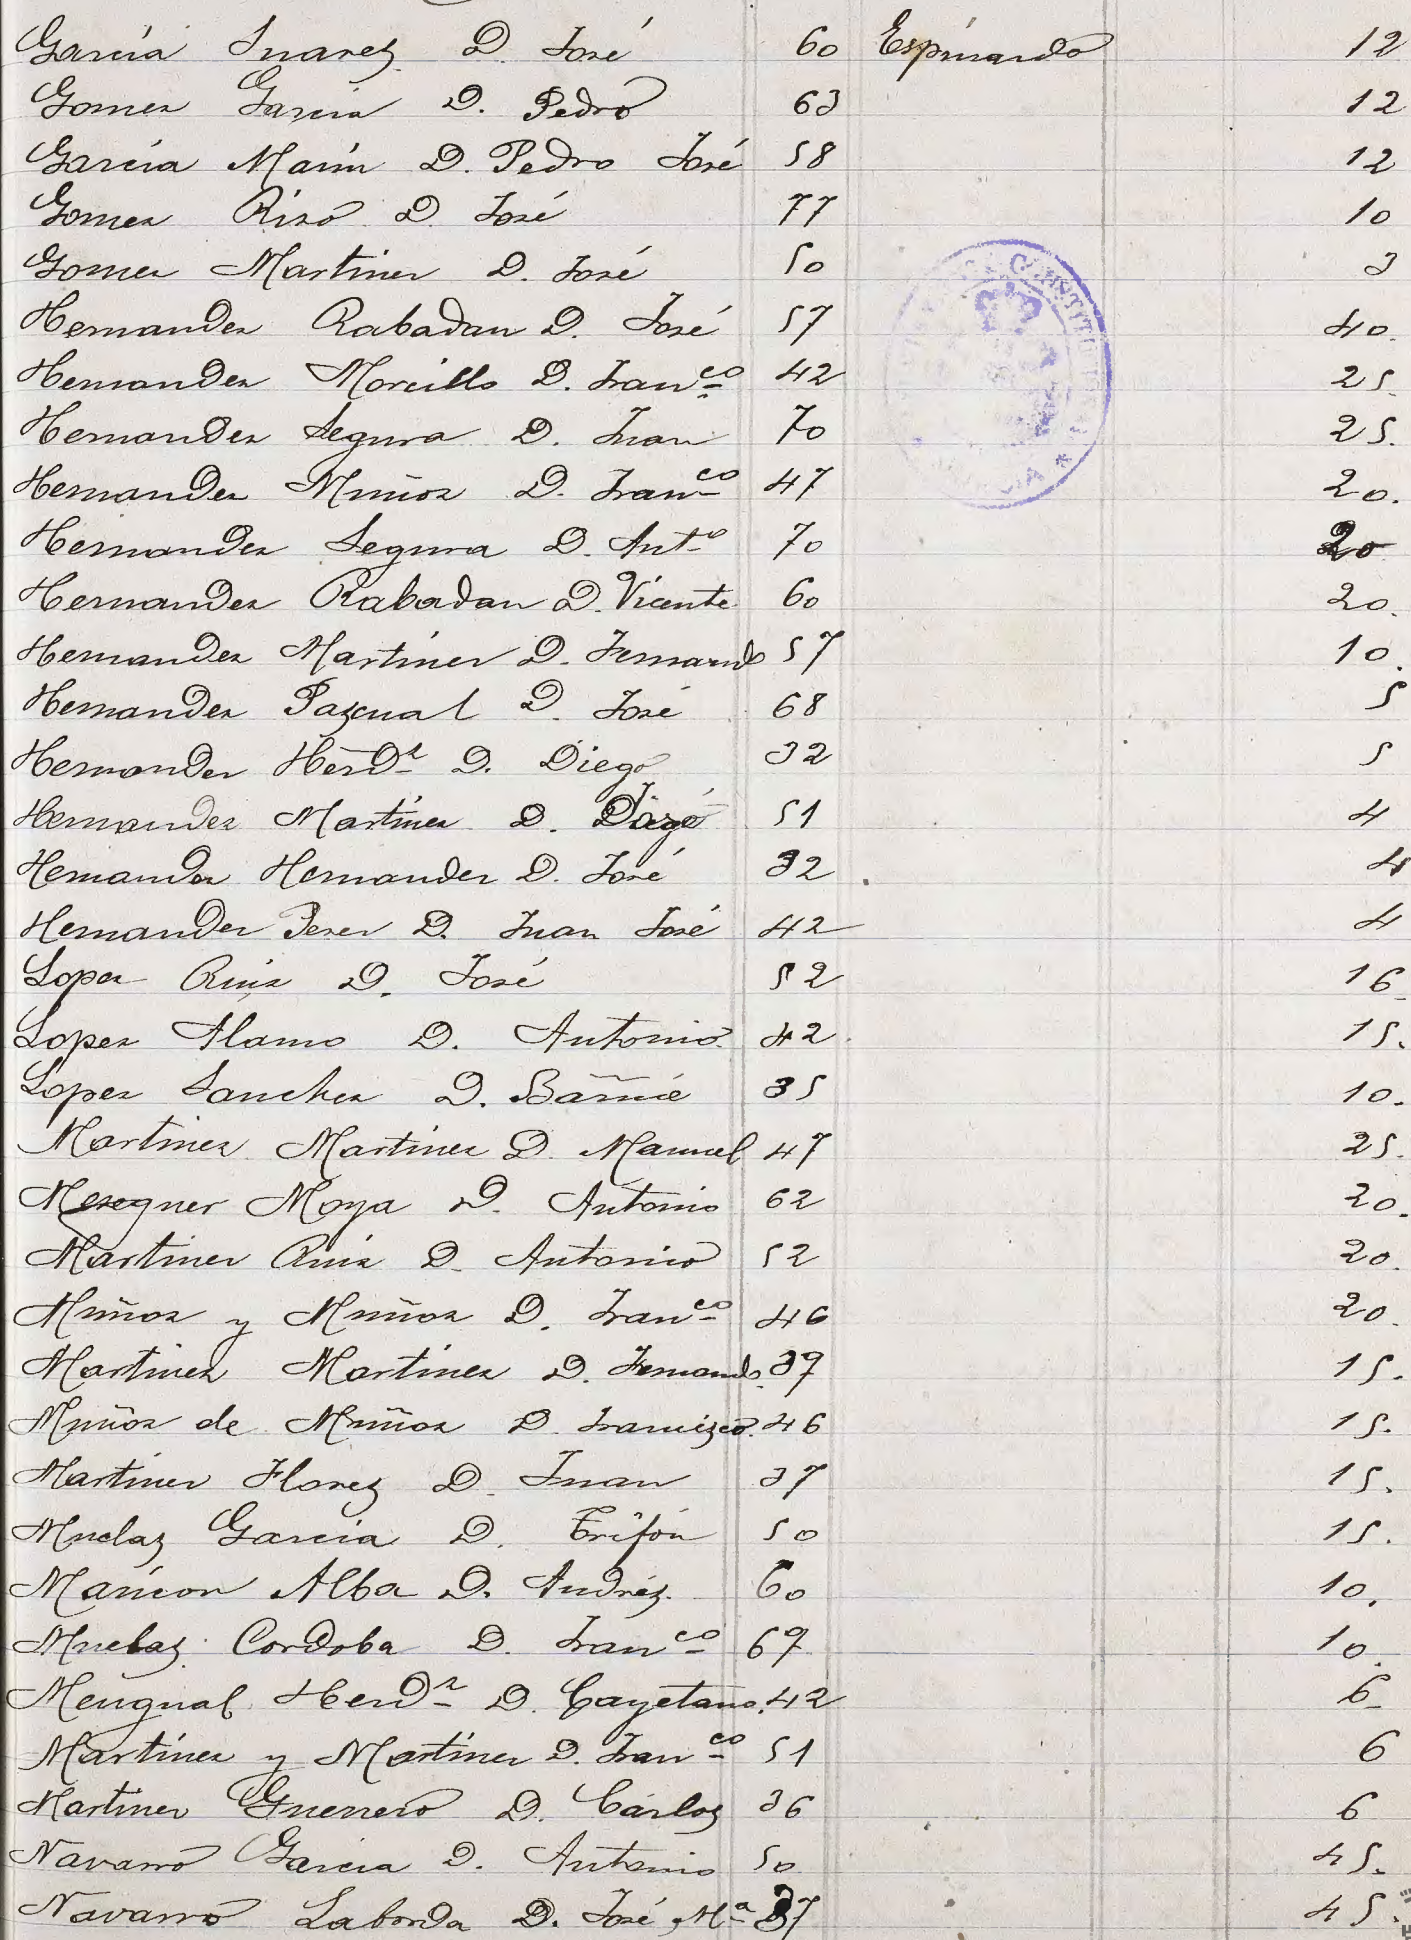 García Suarez D. José 60 Espinardo 12
Gomez García D. Pedro 63 12
García Marín D. Pedro José 58 12
Gomez Rizo D. José 77 10
Gomez Martinez D. José 50 3
Hernandez Rabadan D. José 57 40.
Hernandez Morcillo D. Franco 42 25.
Hernandez Segura D. Juan 70 25.
Hernandez Muñoz D. Franco 47 20.
Hernandez Segura D. Anto 70 20
Hernandez Rabadan D. Vicente 60 20.
Hernandez Martinez D. Fernando 57 10.
Hernandez Pazcual D. José 68 5
Hernandez Herdz D. Diego 32 5
Hernandez Martinez D. 51 4
Hernandez Hernandez D. José 32 4
Hernandez Perez D. Juan José 42 4
Lopez Ruiz D. José 52 16
Lopez Alamo D. Antonio 42 15.
Lopez Sanchez D. 35 10.
Martinez Martinez D. Manuel 47 25.
Meseguer Moya D. Antonio 62 20.
Martinez Ruiz D. Antonio 52 20.
Muñoz y Muñoz D. Franco 46 20.
Martinez Martinez D. Fernando 39 15.
Muñoz de Muñoz D. Francizco 46 15.
Martinez Florez D. Juan 37 15.
Muelaz García D. Trifón 50 15.
Alba D. Andréz 60 10.
Muelaz Cordoba D. Franco 69 10.
Mengual Herdz D. Cayetano. 42 6
Martinez y Martinez D. Franco 51 6
Martinez Guerrero D. Cárloz 36 6
Navarro García D. Antonio 50 45.
Navarro Laborda D. José Ma 37 45.